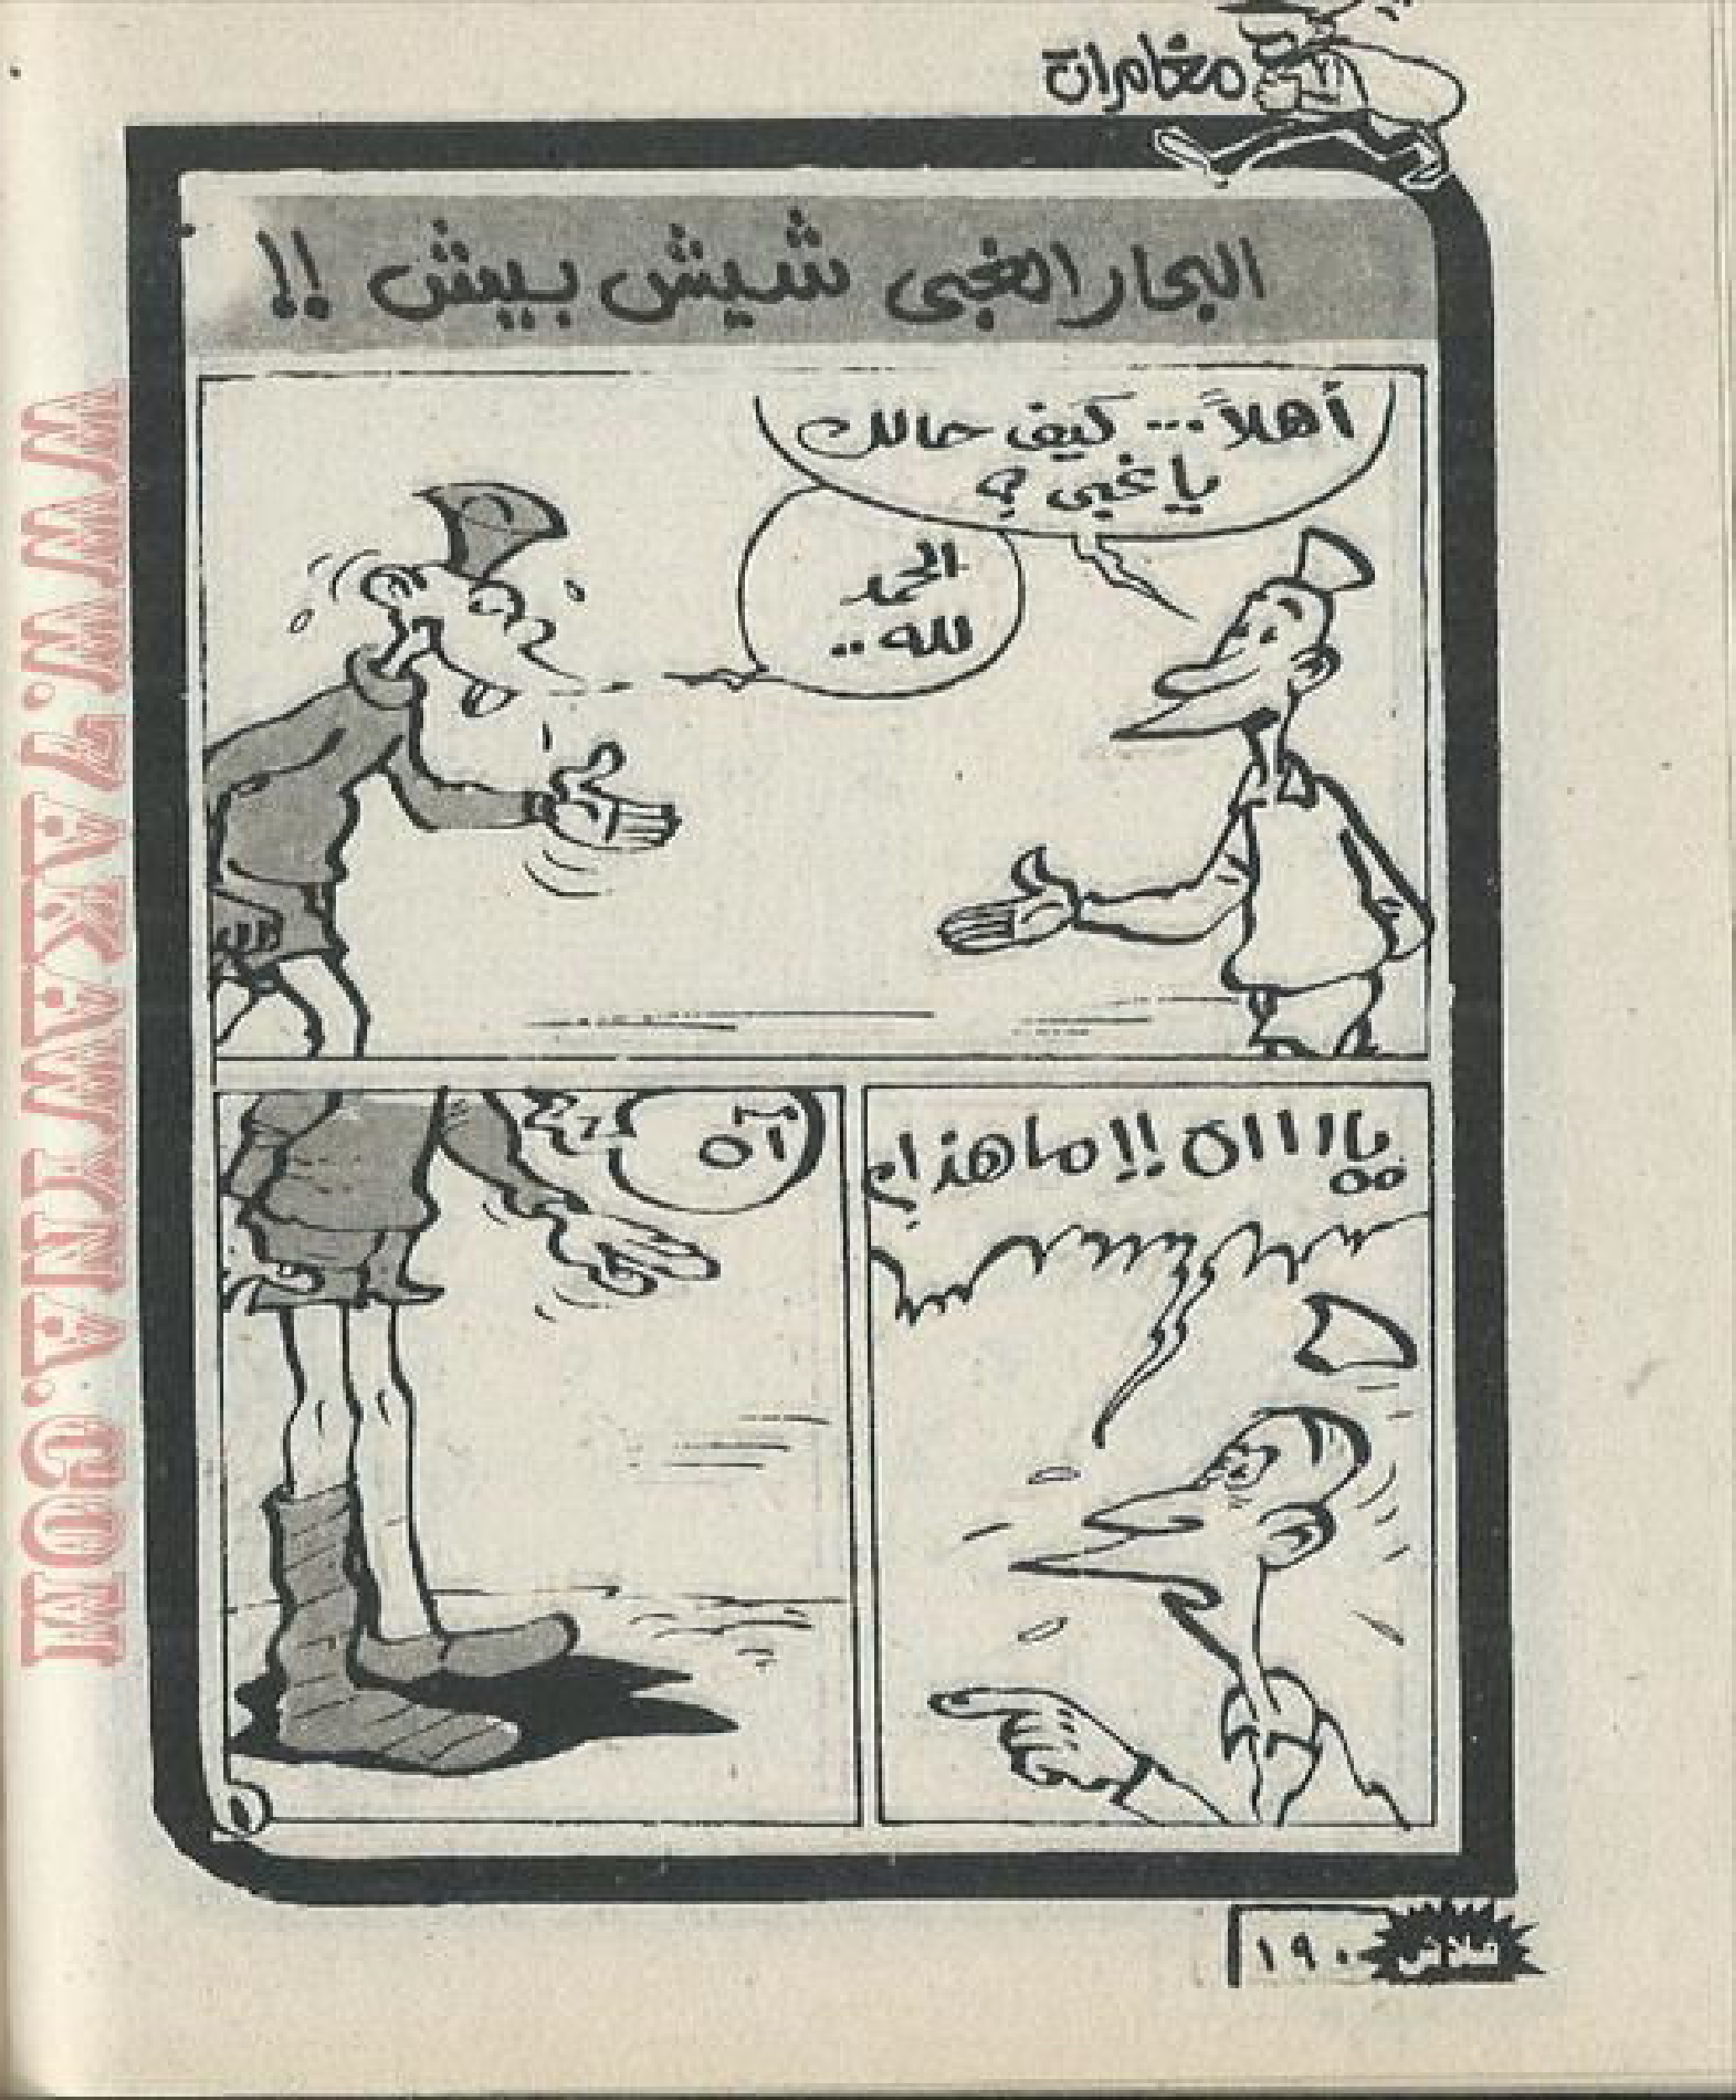 مغامرات
البحار الغبى شيش بيش !!
أهلاً... كيف حالك
يا غبى ؟
الحمد
لله ..
يااااه !! ما هذا ؟
آه
فلاش ١٩٠
WWW.7AKAWINA.COM